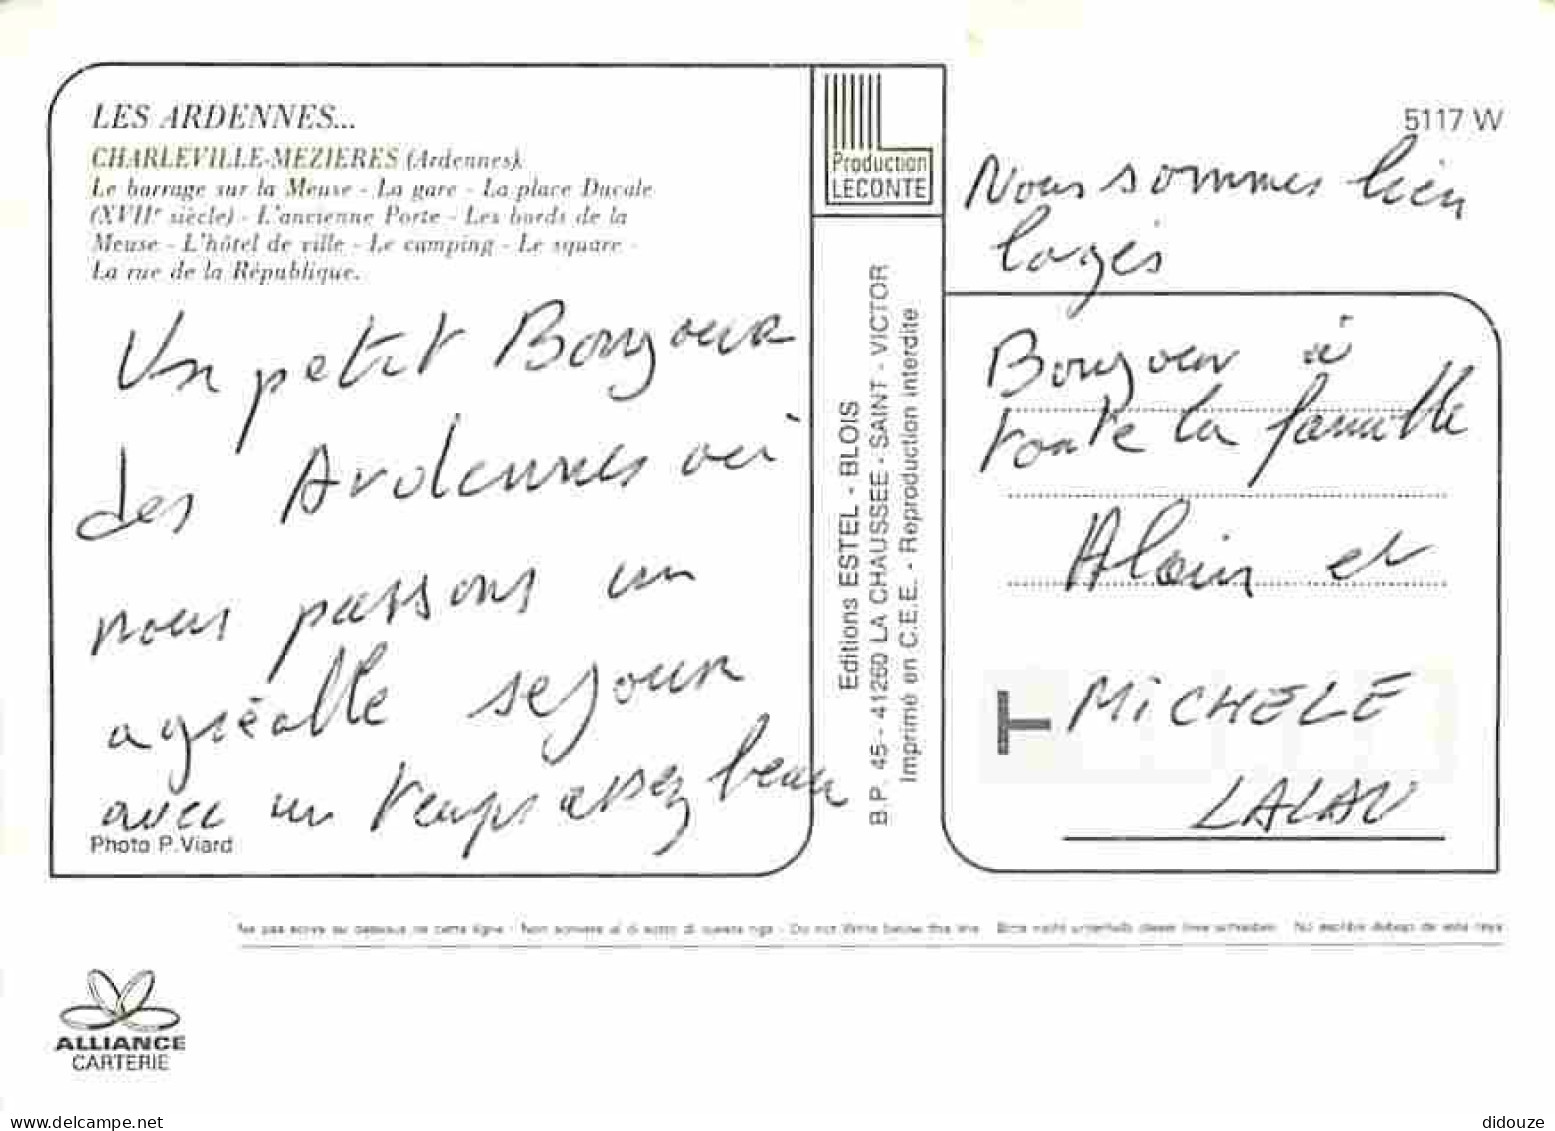 LES ARDENNES...
CHARLEVILLE-MEZIERES (Ardennes).
Le barrage sur la Meuse - La gare - La place Ducale
(XVIIe siècle) - L'ancienne Porte - Les bords de la
Meuse - L'hôtel de ville - Le camping - Le square -
La rue de la République.
Un petit Bonjour
des Ardennes où
nous passons un
agréable sejour
avec un temps assez beau
Photo P.Viard
Production
LECONTE
Editions ESTEL - BLOIS
B.P. 45 - 41260 LA CHAUSSEE - SAINT - VICTOR
Imprimé en C.E.E. - Reproduction interdite
5117 W
Nous sommes bien
logés
Bonjour à
toute la famille
Alain et
MiCHELE
LALAU
T
Ne pas écrire au dessous de cette ligne - Non scrivere al di sotto di questa riga - Do not Write below this line - Bitte nicht unterhalb dieser linie schreiben - No escribir debajo de esta raya
ALLIANCE
CARTERIE
https://www.delcampe.net
didouze